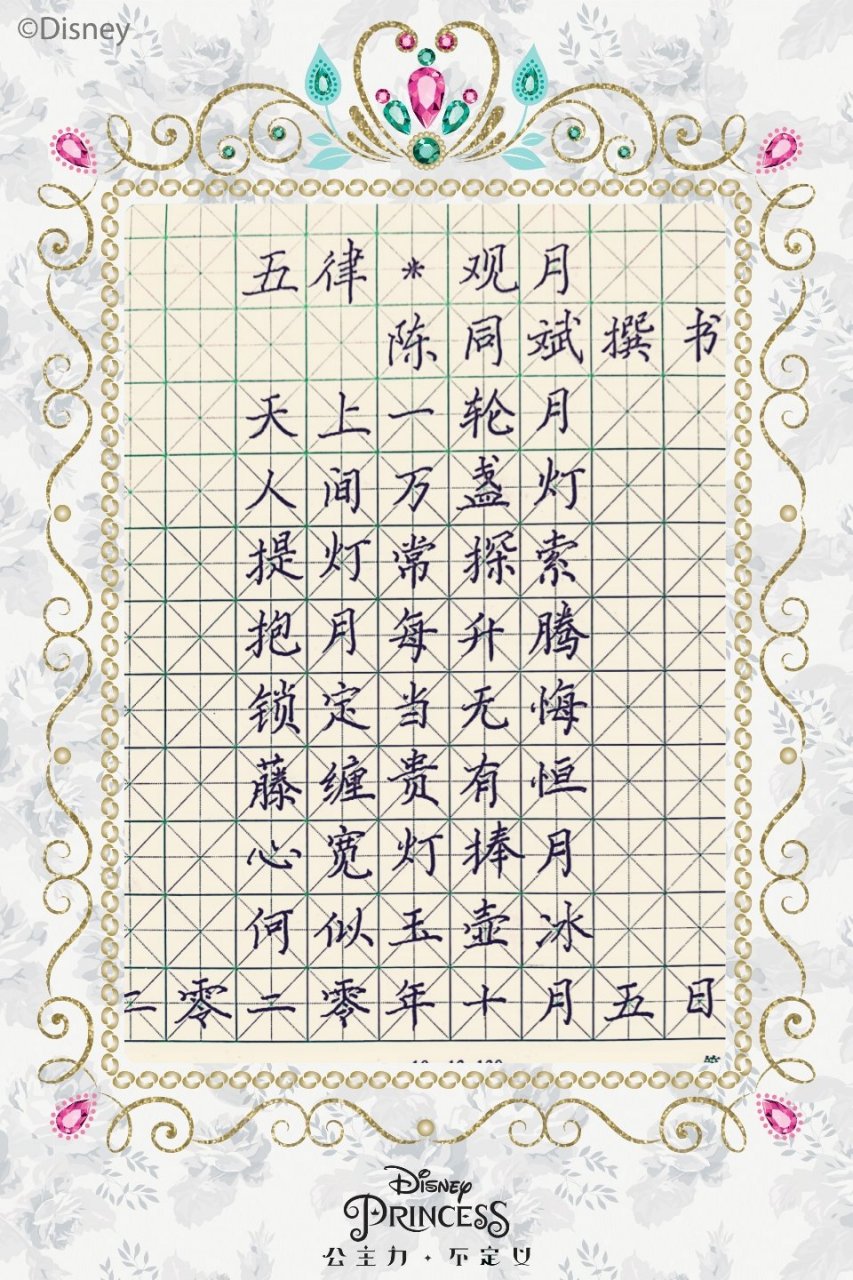 ©Disney
五律*观月
陈同斌撰书
天上一轮月
人间万盏灯
提灯常探索
抱月每升腾
锁定当无悔
藤缠贵有恒
心宽灯捧月
何似玉壶冰
二零二零年十月五日
Disney
PRINCESS
公主力·不定义